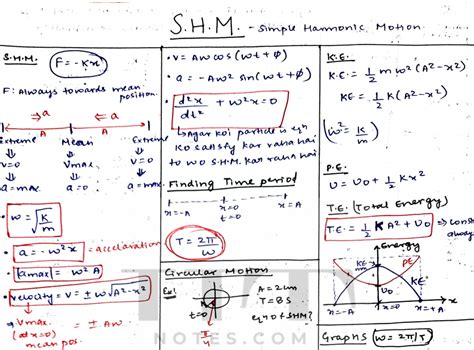 S.H.M. - Simple Harmonic Motion
S.H.M.
F = -Kx
F: Always towards mean
position.
⇒a a⇐
A A
Extreme Mean Extreme
v=0 Vmax. v=0
a=max. a=0 a=max
• ω = √K/m
• a = -ω²x = acceleration
• amax = ω²A
• velocity = v = ± ω√A²-x²
Vmax. = ± Aω
(at x=0)
mean pos.
• v = Aω cos(ωt+φ)
• a = -Aω² sin(ωt+φ)
• d²x/dt² + ω²x = 0
Agar koi particle is eqn
ko satisfy kar raha hai
to wo S.H.M. kar raha hai
Finding Time period
x=-A x=0 x=A
T = 2π/ω
Circular Motion
Ex:
t=0
π/4
A = 2cm
T = 8s
eqn of SHM?
K.E:
K.E: = 1/2 mω²(A²-x²)
KE = 1/2 K(A²-x²)
(ω² = K/m)
P.E:
U = U₀ + 1/2 Kx²
T.E: (Total Energy)
T.E: = 1/2 KA² + U₀ ⇒ const.
Energy
KE PE
U₀ KE
x=-A x=0 x=+A
Graphs (ω = 2π/T)
NOTES.COM